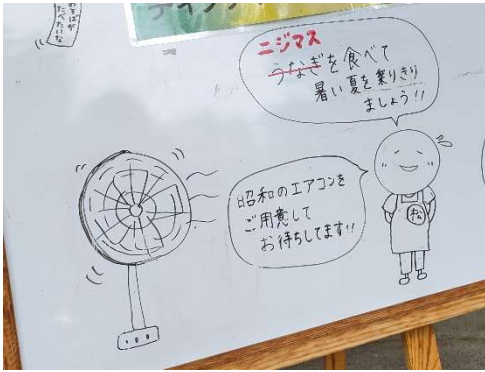 たべたいな
ニジマス
うなぎを食べて
暑い夏を乗りきり
ましょう!!
昭和のエアコンを
ご用意して
お待ちしてます!!
松